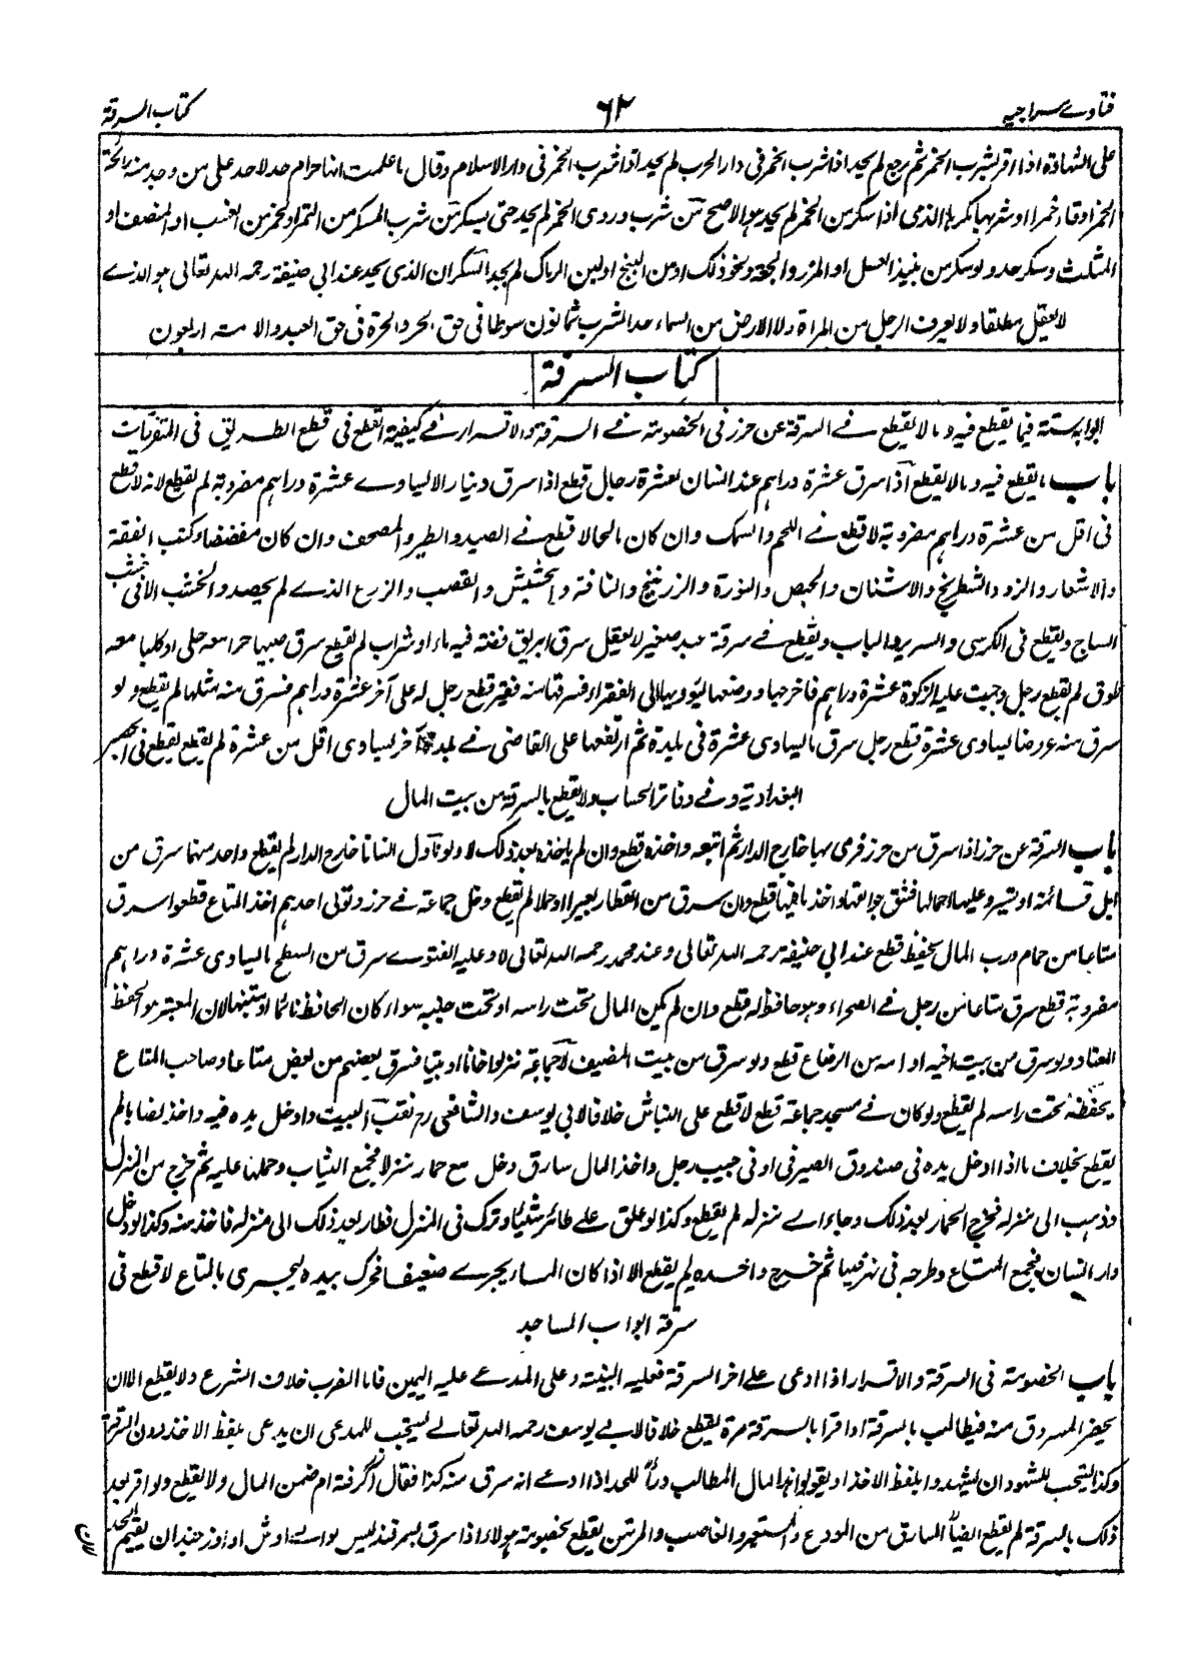 فتاوے سراجیہ ٦٢ كتاب السرقة
على الشهادة اذا اقر بشرب الخمر ثم رجع لم يحد اذا شرب الخمر فى دار الحرب لم يحد اذا شرب الخمر فى دار الاسلام وقال ما علمت انها حرام حد لا حد على من وجد منه رائحة
الخمر او قاء خمرا او شربها مكرها الذمى اذا سكر من الخمر لم يحد هو الاصح من شرب دردى الخمر لم يحد حتى يسكر من شرب المسكر من التمر او الخمر من العنب او المنصف او
المثلث وسكر يحد ولو سكر من نبيذ العسل او المزر والجعة ونحو ذلك او من البنج او لبن الرماك لم يحد السكران الذى يحد عند ابي حنيفة رحمه الله تعالى هو الذے
لا يعقل مطلقا ولا يعرف الرجل من المراة ولا الارض من السماء حد الشرب ثمانون سوطا فى حق الحر والحرة فى حق العبد والامة اربعون
كتاب السرقة
ابوابه ستة فيما يقطع فيه وما لا يقطع فے السرقة عن حرز فى الخصومة فے السرقة والاقرار فے كيفية القطع فى قطع الطريق فى المتفرقات
باب ما يقطع فيه وما لا يقطع اذا سرق عشرة دراهم عند انسان لعشرة رجال قطع اذا سرق دينارا لا يساوے عشرة دراهم مضروبة لم يقطع لانه لا قطع
فى اقل من عشرة دراهم مضروبة لا قطع فے اللحم والسمك وان كان مالحا لا قطع فے الصيد والطير والمصحف وان كان مفضضا وكتب الفقة
والاشعار والنرد والشطرنج والاشنان والجص والنورة والزرنيخ والحشيش والقصب والزرع الذے لم يحصد والخشب الا فى خشب
الساج ويقطع فى الكرسى والسرير والباب ويقطع فے سرقة عبد صغير لا يعقل سرق ابريق فضة فيه ماء او شراب لم يقطع سرق صبيا حرا معه حلى او كلبا معه
طوق لم يقطع رجل وجبت عليه الزكوة عشرة دراهم فاخرجها ووضعها ليؤديها الى الفقراء فسرقها منه فقير قطع رجل له على آخر عشرة دراهم فسرق منه مثلها لم يقطع ولو
سرق منه عروضا يساوى عشرة قطع رجل سرق ما يساوى عشرة فى بلدة ثم ارتفعا على القاضى فے بلد آخر يساوى اقل من عشرة لم يقطع يقطع فى الحصير
البغدادية وفے دفاتر الحساب ولا يقطع بالسرقة من بيت المال
باب السرقة عن حرز اذا سرق من حرز فرمى بها خارج الدار ثم اتبعه واخذه قطع وان لم ياخذه بعد ذلك لا ولو ناول انسانا خارج الدار لم يقطع واحد منهما سرق من
ابل قائمة او تسير وعليها احمالها فشق جوالقها واخذ ما فيها قطع وان سرق من القطار بعيرا او حملا لم يقطع دخل جماعة فے حرز وتولى احدهم اخذ المتاع قطعوا سرق
متاعا من حمام ورب المال يحفظ قطع عند ابي حنيفة رحمه الله تعالى وعند محمد رحمه الله تعالى لا وعليه الفتوے سرق من السطح ما يساوى عشرة دراهم
مضروبة قطع سرق متاعا من رجل فے الصحراء وهو حافظ له قطع وان لم يكن المال تحت راسه او تحت جنبه سواء كان الحافظ نائما او متنبها لان المعتبر هو الحفظ
المعتاد ولو سرق من بيت اخيه او امه من الرضاع قطع ولو سرق من بيت المضيف لا جماعة نزلوا خانا او بيتا فسرق بعضهم من بعض متاعا وصاحب المتاع
يحفظه تحت راسه لم يقطع ولو كان فے مسجد جماعة قطع لا قطع على النباش خلافا لابي يوسف والشافعى رح نقب البيت وادخل يده فيه واخذ نصابا لم
يقطع بخلاف ما اذا ادخل يده فى صندوق الصيرفى او فى جيب رجل واخذ المال سارق دخل مع حمار منزلا فجمع الثياب وحملها عليه ثم خرج من المنزل
وذهب الى منزله فخرج الحمار بعد ذلك وجاء الے منزله لم يقطع وكذا لو علق علے طائر شيئا وترك فى المنزل فطار بعد ذلك الى منزله فاخذ منه وكذا لو دخل
دار انسان فجمع المتاع وطرحه فى نهر فيها ثم خرج واخذه لم يقطع الا اذا كان الماء يجرے ضعيفا فحرك بيده ليجرى بالمتاع لا قطع فى
سرقة ابواب المساجد
باب الخصومة فى السرقة والاقرار اذا ادعى علے اخر السرقة فعليه البينة وعلى المدعے عليه اليمين فاما الضرب خلاف الشرع ولا يقطع الا ان
يحضر المسروق منه فيطالب بالسرقة اذا اقر بالسرقة مرة يقطع خلافا لابے يوسف رحمه الله تعالے يستحب للمدعى ان يدعى بلفظ الاخذ دون السرقة
وكذا يستحب للشهود ان يشهدوا بلفظ الاخذ او يقولوا هذا المال للطالب درأ للحد اذا ادعے انه سرق منه كذا فقال ضمن المال ولا يقطع ولو اقر بعد
ذلك بالسرقة لم يقطع ايضا السارق من المودع والمستعير والغاصب والمرتهن يقطع بخصومة هؤلاء اذا سرق بسمرقند ليس لوالے اوش او اوزجند ان يقيم الحد